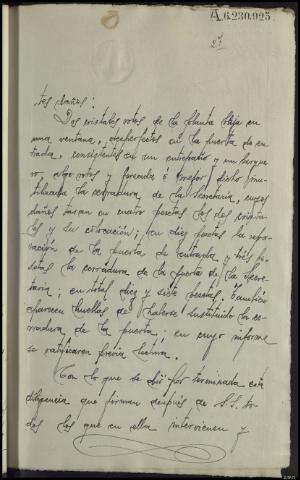 A.6.230.925
27
tes daños:
Dos cristales rotos de la planta baja en
una ventana, desperfectos en la puerta de en
trada, consistentes en un entrepaño y un larque
ro, algo rotos y forzada ó mejor dicho inu-
tilizada la cerradura de la Secretaría, cuyos
daños tasan en cuatro pesetas los dos crista-
les y su colocación; en diez pesetas la repa-
ración de la puerta de entrada y tres pe-
setas la cerradura de la puerta de la Secre-
taria; en total diez y siete pesetas. También
aparecen huellas de haberse sustituido la ce-
rradura de la puerta; en cuyo informe
se ratificaron previa lectura.
Con lo que se dió por terminada esta
diligencia que firman después de S.S. to-
dos los que en ella intervienen y